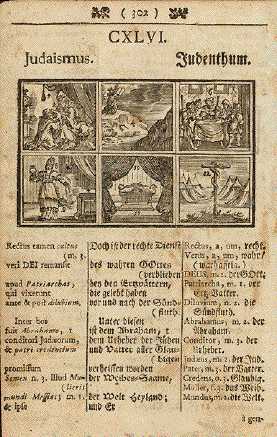 ( 302 )
CXLVI.
Judaismus.
Judenthum.
Rectus tamen cultus
(m. 3.
veri DEI remansit
apud Patriarchas,
qui vixerunt
ante & post diluvium,
Inter hos
fuit Abrahamus, 1
conditor Judæorum,
& pater credentium
promissum
Semen n. 3. illud Mun-
mundi Messias; m. 1.
&
Doch ist der rechte Dienst
des wahren GOttes
(verblieben
bey den Ertzvätern,
die gelebt haben
vor und nach der Sünd-
(fluth.
Unter diesen
ist dem Abraham, 1
dem Urheber der Jüden
und Vatter aller Glau-
(bigen
verheissen worden
der Weibes-Saame,
der Welt Heyland;
und Er
Rectus, a, um, recht.
Verus, a, um, wahr/
(warhafftig.)
DEUS, m. 2. der GOtt.
Patriarcha, m. 1. der
Ertz-Vatter.
Diluvium, n. 2. die
Sündfluth.
Abrahamus, m. 2. der
Abraham.
Conditor, m. 3. der
Urheber.
Judæus, m. 2. der Jud.
Pater, m. 3. der Vatter.
Credens, o. 3. Glaubig.
Mundus, m. 2. die Welt.